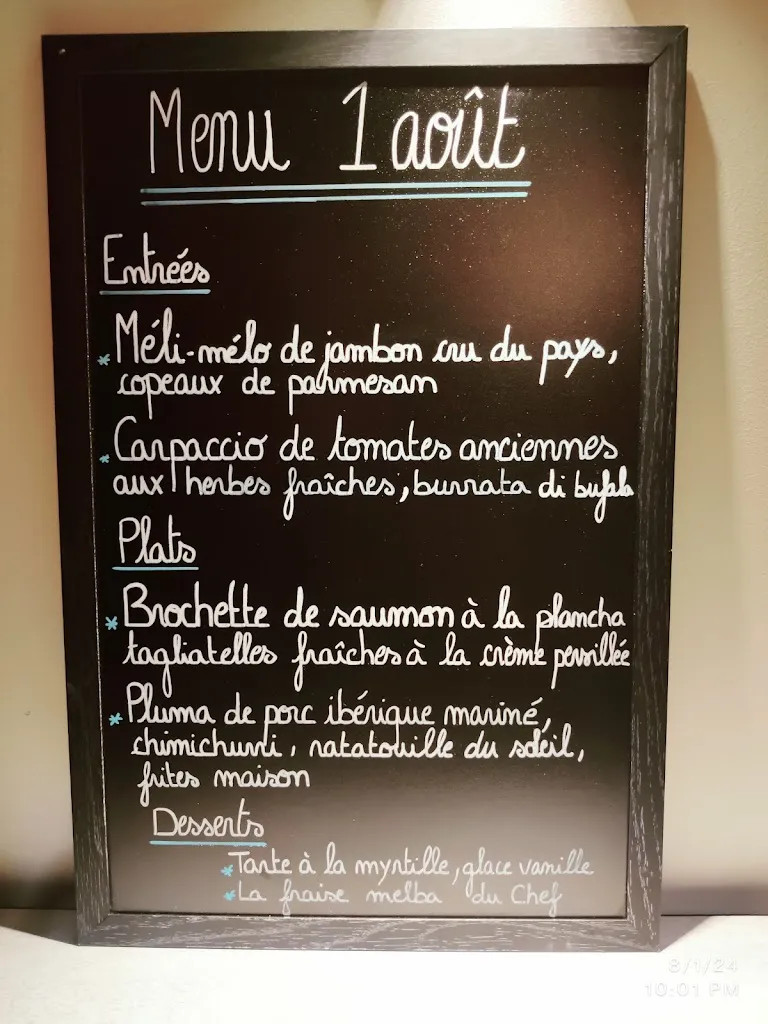 Menu 1 août
Entrées
* Méli-mélo de jambon cru du pays,
copeaux de parmesan
* Carpaccio de tomates anciennes
aux herbes fraîches, burrata di bufala
Plats
* Brochette de saumon à la plancha
tagliatelles fraîches à la crème persillée
* Pluma de porc ibérique mariné,
chimichurri, ratatouille du soleil,
frites maison
Desserts
* Tarte à la myrtille, glace vanille
* La fraise melba du Chef
8/1/24
10:01 PM